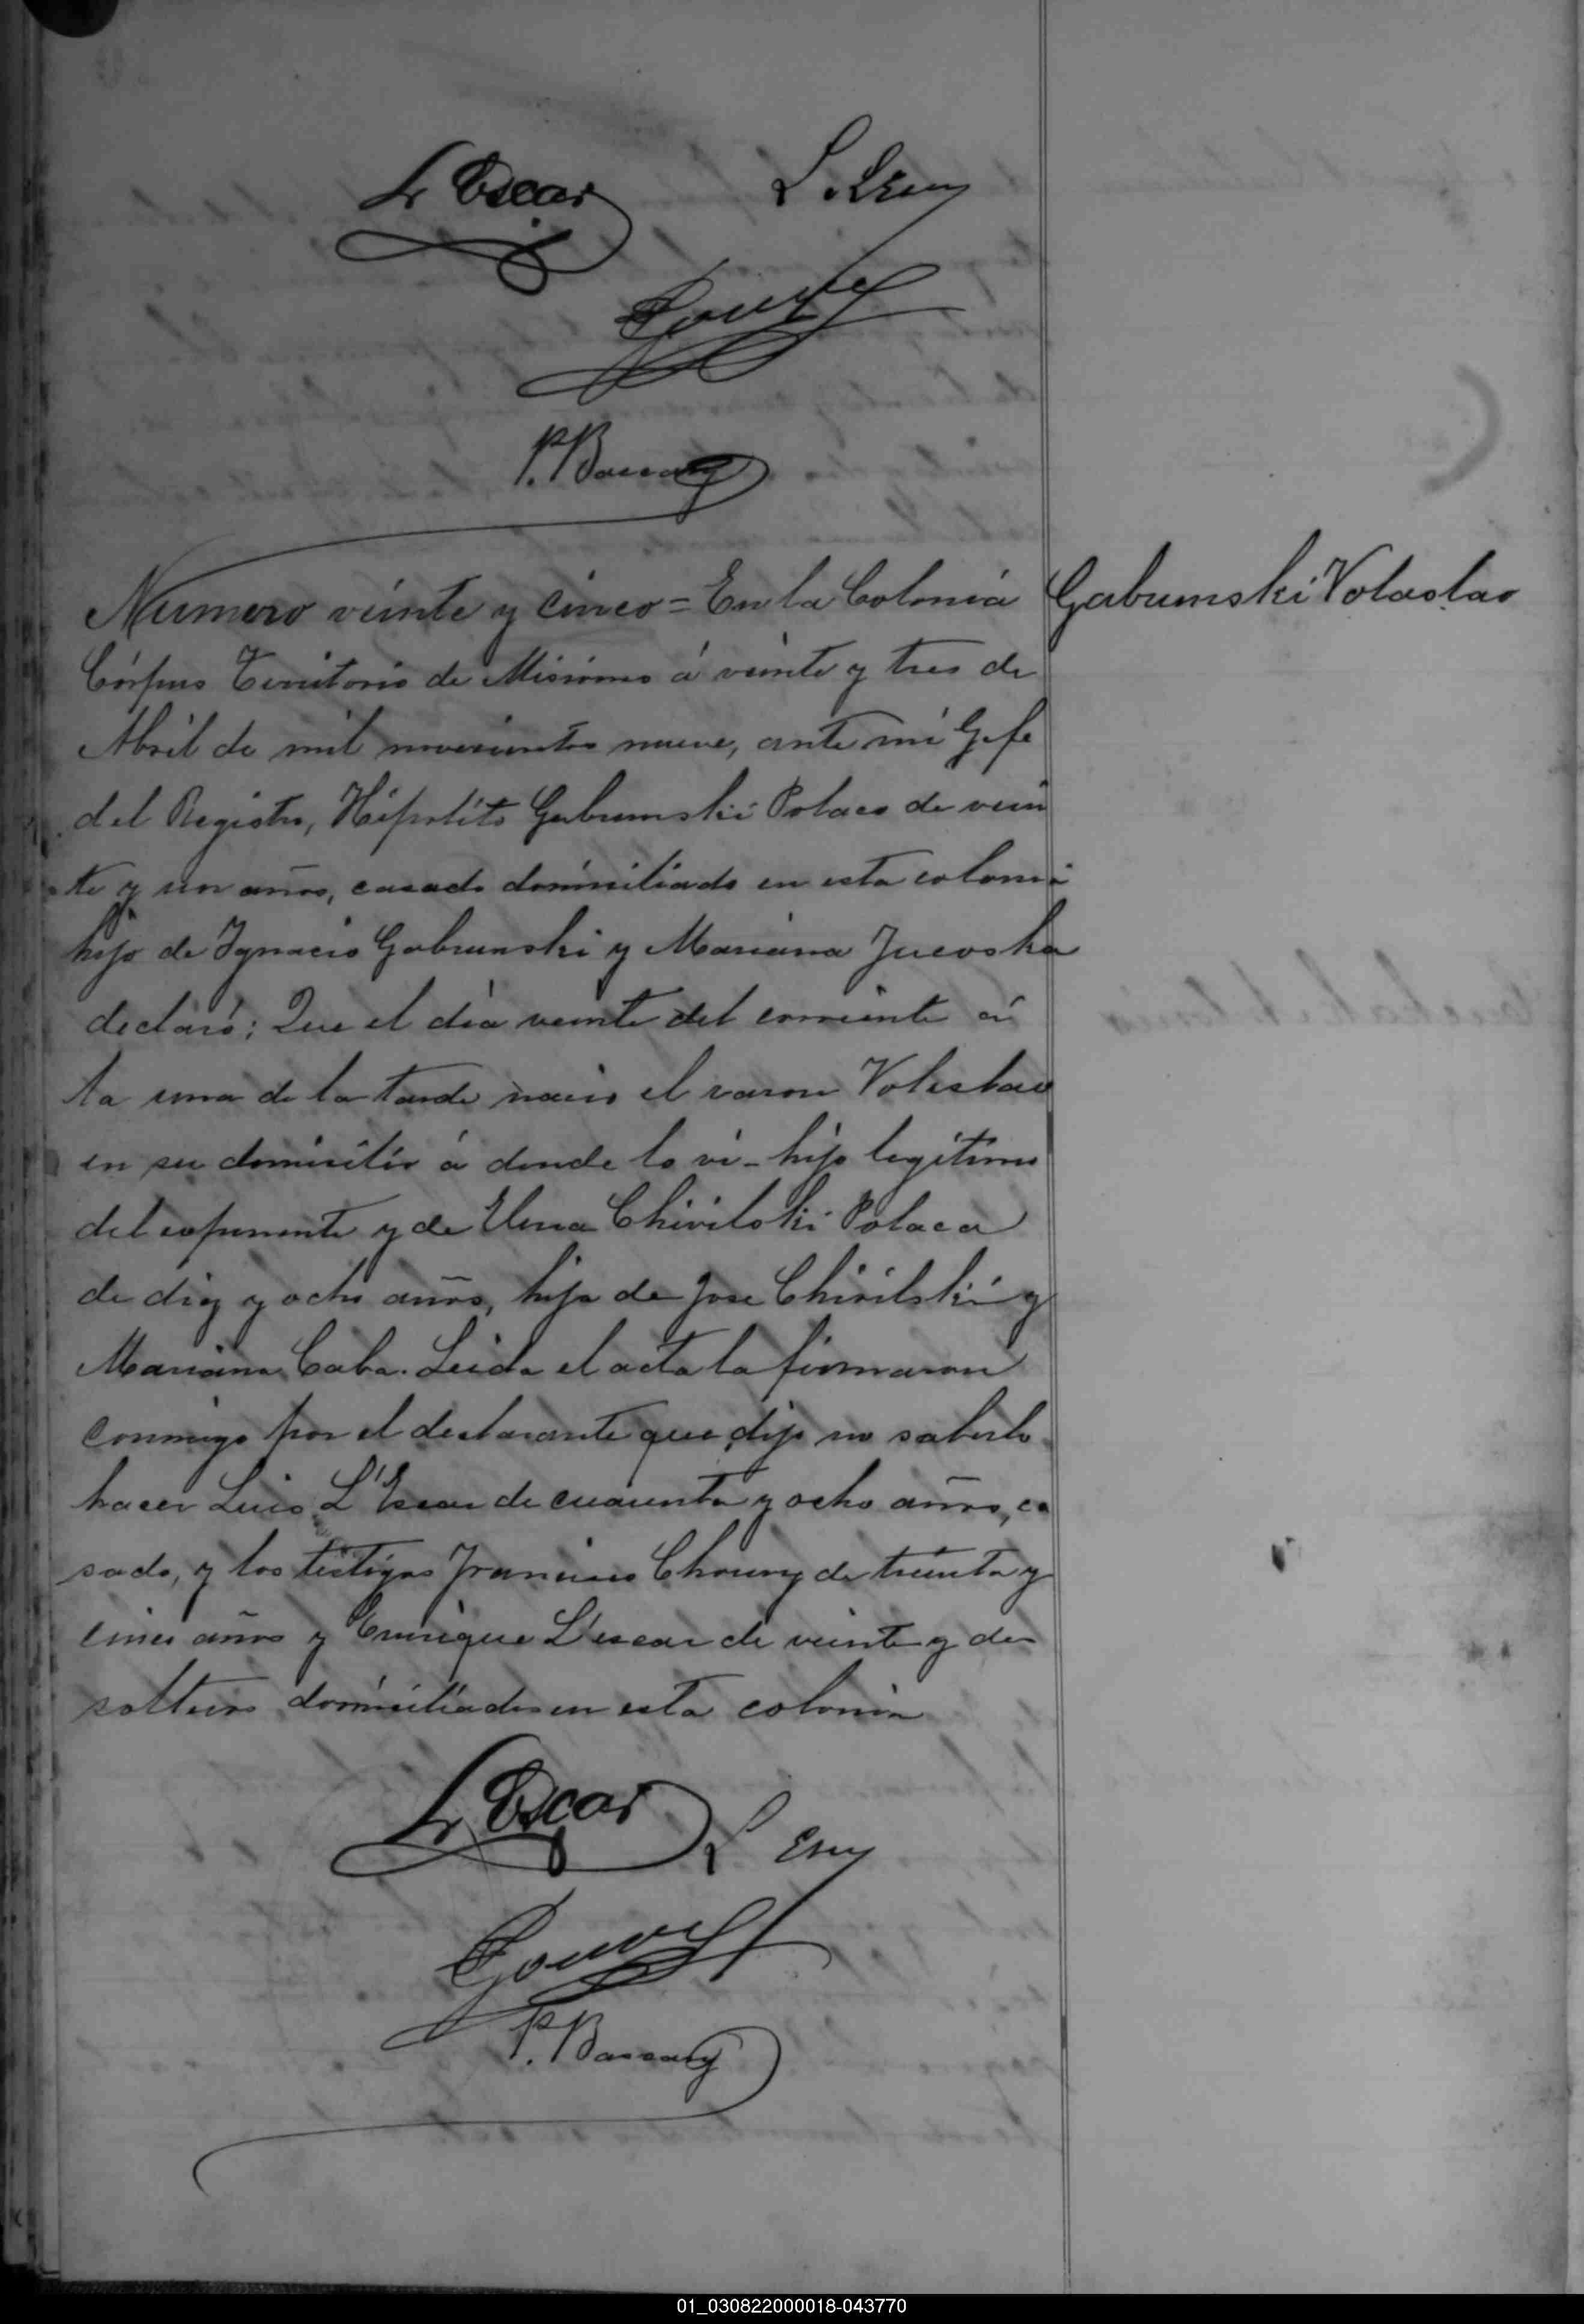 L Escar
P. Bassary
Numero veinte y cinco = En la Colonia
Gabumski Volaslao
Córpus Territorio de Misiones á veinte y tres de
Abril de mil novecientos nueve, ante mi Gefe
del Registro, Hipolito Gabumski Polaco de vein
te y un años, casado domiciliado en esta coloni
hijo de Ignacio Gabrunski y Mariana Jucoska
declaró; Que el dia veinte del corriente á
la una de la tarde nacio el varon Voleslao
en su domicilio á donde lo vi - hijo legitimo
del esponente y de Elena Chivilski Polaca
de diez y ocho años, hija de Jose Chivilski y
Mariana Caba. Leida el acta la firmaron
conmigo por el declarante que dijo no saberlo
hacer Luis L'Escar de cuarenta y ocho años, ca
sado, y los testigos Francisco Chouvy de treinta y
cinco años y Enrique L'escar de veinte y dos
solteros domiciliados en esta colonia
L Escar
P. Bassary
01_030822000018-043770